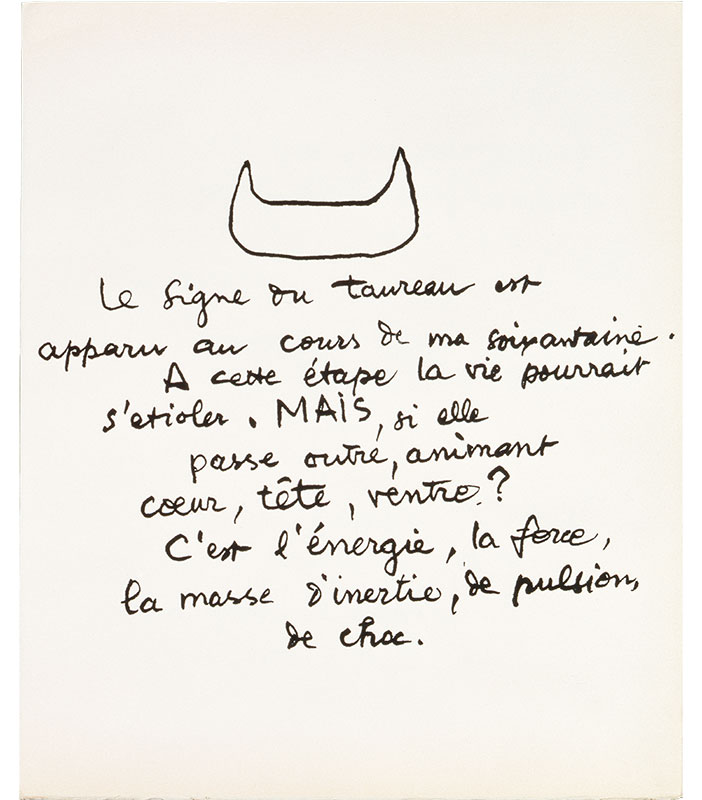 Le signe du taureau est
apparu au cours de ma soixantaine.
A cette étape la vie pourrait
s'etioler. MAIS, si elle
passe outre, animant
cœur, tête, ventre?
C'est l'énergie, la force,
la masse d'inertie, de pulsion,
de choc.